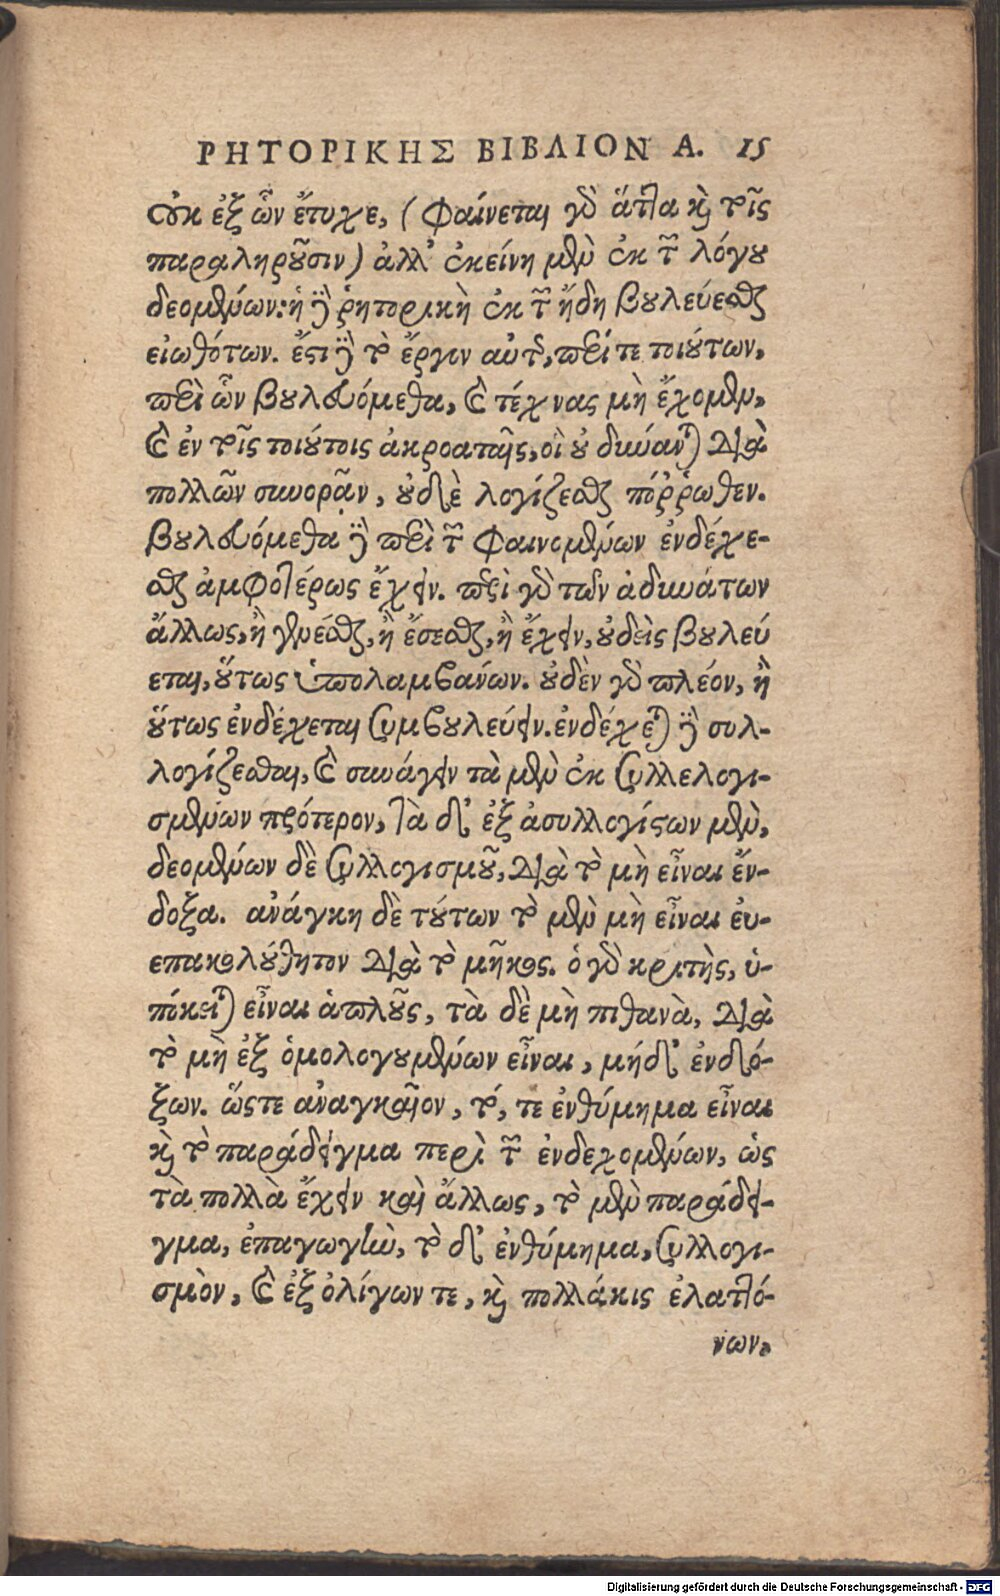 ΡΗΤΟΡΙΚΗΣ ΒΙΒΛΙΟΝ Α. 15
οὐκ ἐξ ὧν ἔτυχε, (φαίνεται γὰρ ἄττα καὶ τοῖς
παραληροῦσιν) ἀλλ' ἐκείνη μὲν ἐκ τῶν λόγου
δεομένων: ἡ δὲ ῥητορικὴ ἐκ τῶν ἤδη βουλεύεσθαι
εἰωθότων. ἔστι δὲ τὸ ἔργον αὐτῆς, περί τε τοιούτων,
περὶ ὧν βουλευόμεθα, καὶ τέχνας μὴ ἔχομεν,
καὶ ἐν τοῖς τοιούτοις ἀκροαταῖς, οἳ οὐ δύνανται διὰ
πολλῶν συνορᾶν, οὐδὲ λογίζεσθαι πόῤῥωθεν.
βουλευόμεθα δὲ περὶ τῶν φαινομένων ἐνδέχε-
σθαι ἀμφοτέρως ἔχειν. περὶ γὰρ τῶν ἀδυνάτων
ἄλλως, ἢ γενέσθαι, ἢ ἔσεσθαι, ἢ ἔχειν, οὐδεὶς βουλεύ
εται, οὕτως ὑπολαμβανών. οὐδὲν γὰρ πλέον, ἢ
οὕτως ἐνδέχεται συμβουλεύειν. ἐνδέχεται δὲ συλ-
λογίζεσθαι, καὶ συνάγειν τὰ μὲν ἐκ συλλελογι-
σμένων πρότερον, τὰ δ' ἐξ ἀσυλλογίστων μὲν,
δεομένων δὲ συλλογισμοῦ, διὰ τὸ μὴ εἶναι ἔν-
δοξα. ἀνάγκη δὲ τούτων τὸ μὲν μὴ εἶναι εὐ-
επακολούθητον διὰ τὸ μῆκος. ὁ γὰρ κριτὴς, ὑ-
πόκειται εἶναι ἁπλοῦς, τὰ δὲ μὴ πιθανὰ, διὰ
τὸ μὴ ἐξ ὁμολογουμένων εἶναι, μήδ' ἐνδό-
ξων. ὥστε ἀναγκαῖον, τό, τε ἐνθύμημα εἶναι
καὶ τὸ παράδειγμα περὶ τῶν ἐνδεχομένων, ὡς
τὰ πολλὰ ἔχειν καὶ ἄλλως, τὸ μὲν παράδει-
γμα, ἐπαγωγὴν, τὸ δ' ἐνθύμημα, συλλογι-
σμὸν, καὶ ἐξ ὀλίγων τε, καὶ πολλάκις ἐλαττό-
νων,
Digitalisierung gefördert durch die Deutsche Forschungsgemeinschaft - DFG